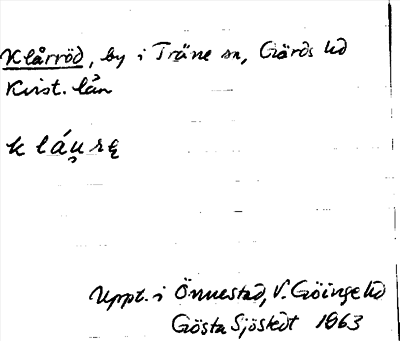 Klårröd, by i Träne sn, Gärds hd
Krist. län
k láu̯rę
Uppt. i Önnestad, V. Göinge hd
Gösta Sjöstedt 1963